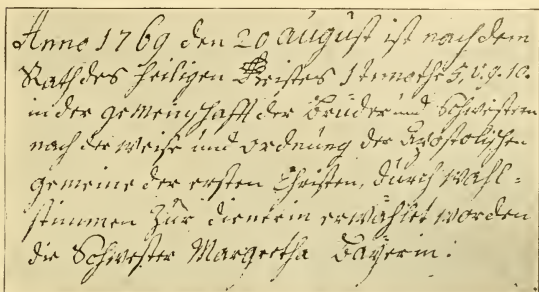 Anno 1769 den 20 August ist nach dem
Rath des heiligen Geistes 1 timothe 5. v. 9. 10.
in der gemeinschafft der Brüder und Schwestern
nach der weise und ordnung der Apostolischen
gemeine der ersten Christen, durch wahl=
stimmen zur dienerin erwählet worden
die Schwester Margretha Bayerin.